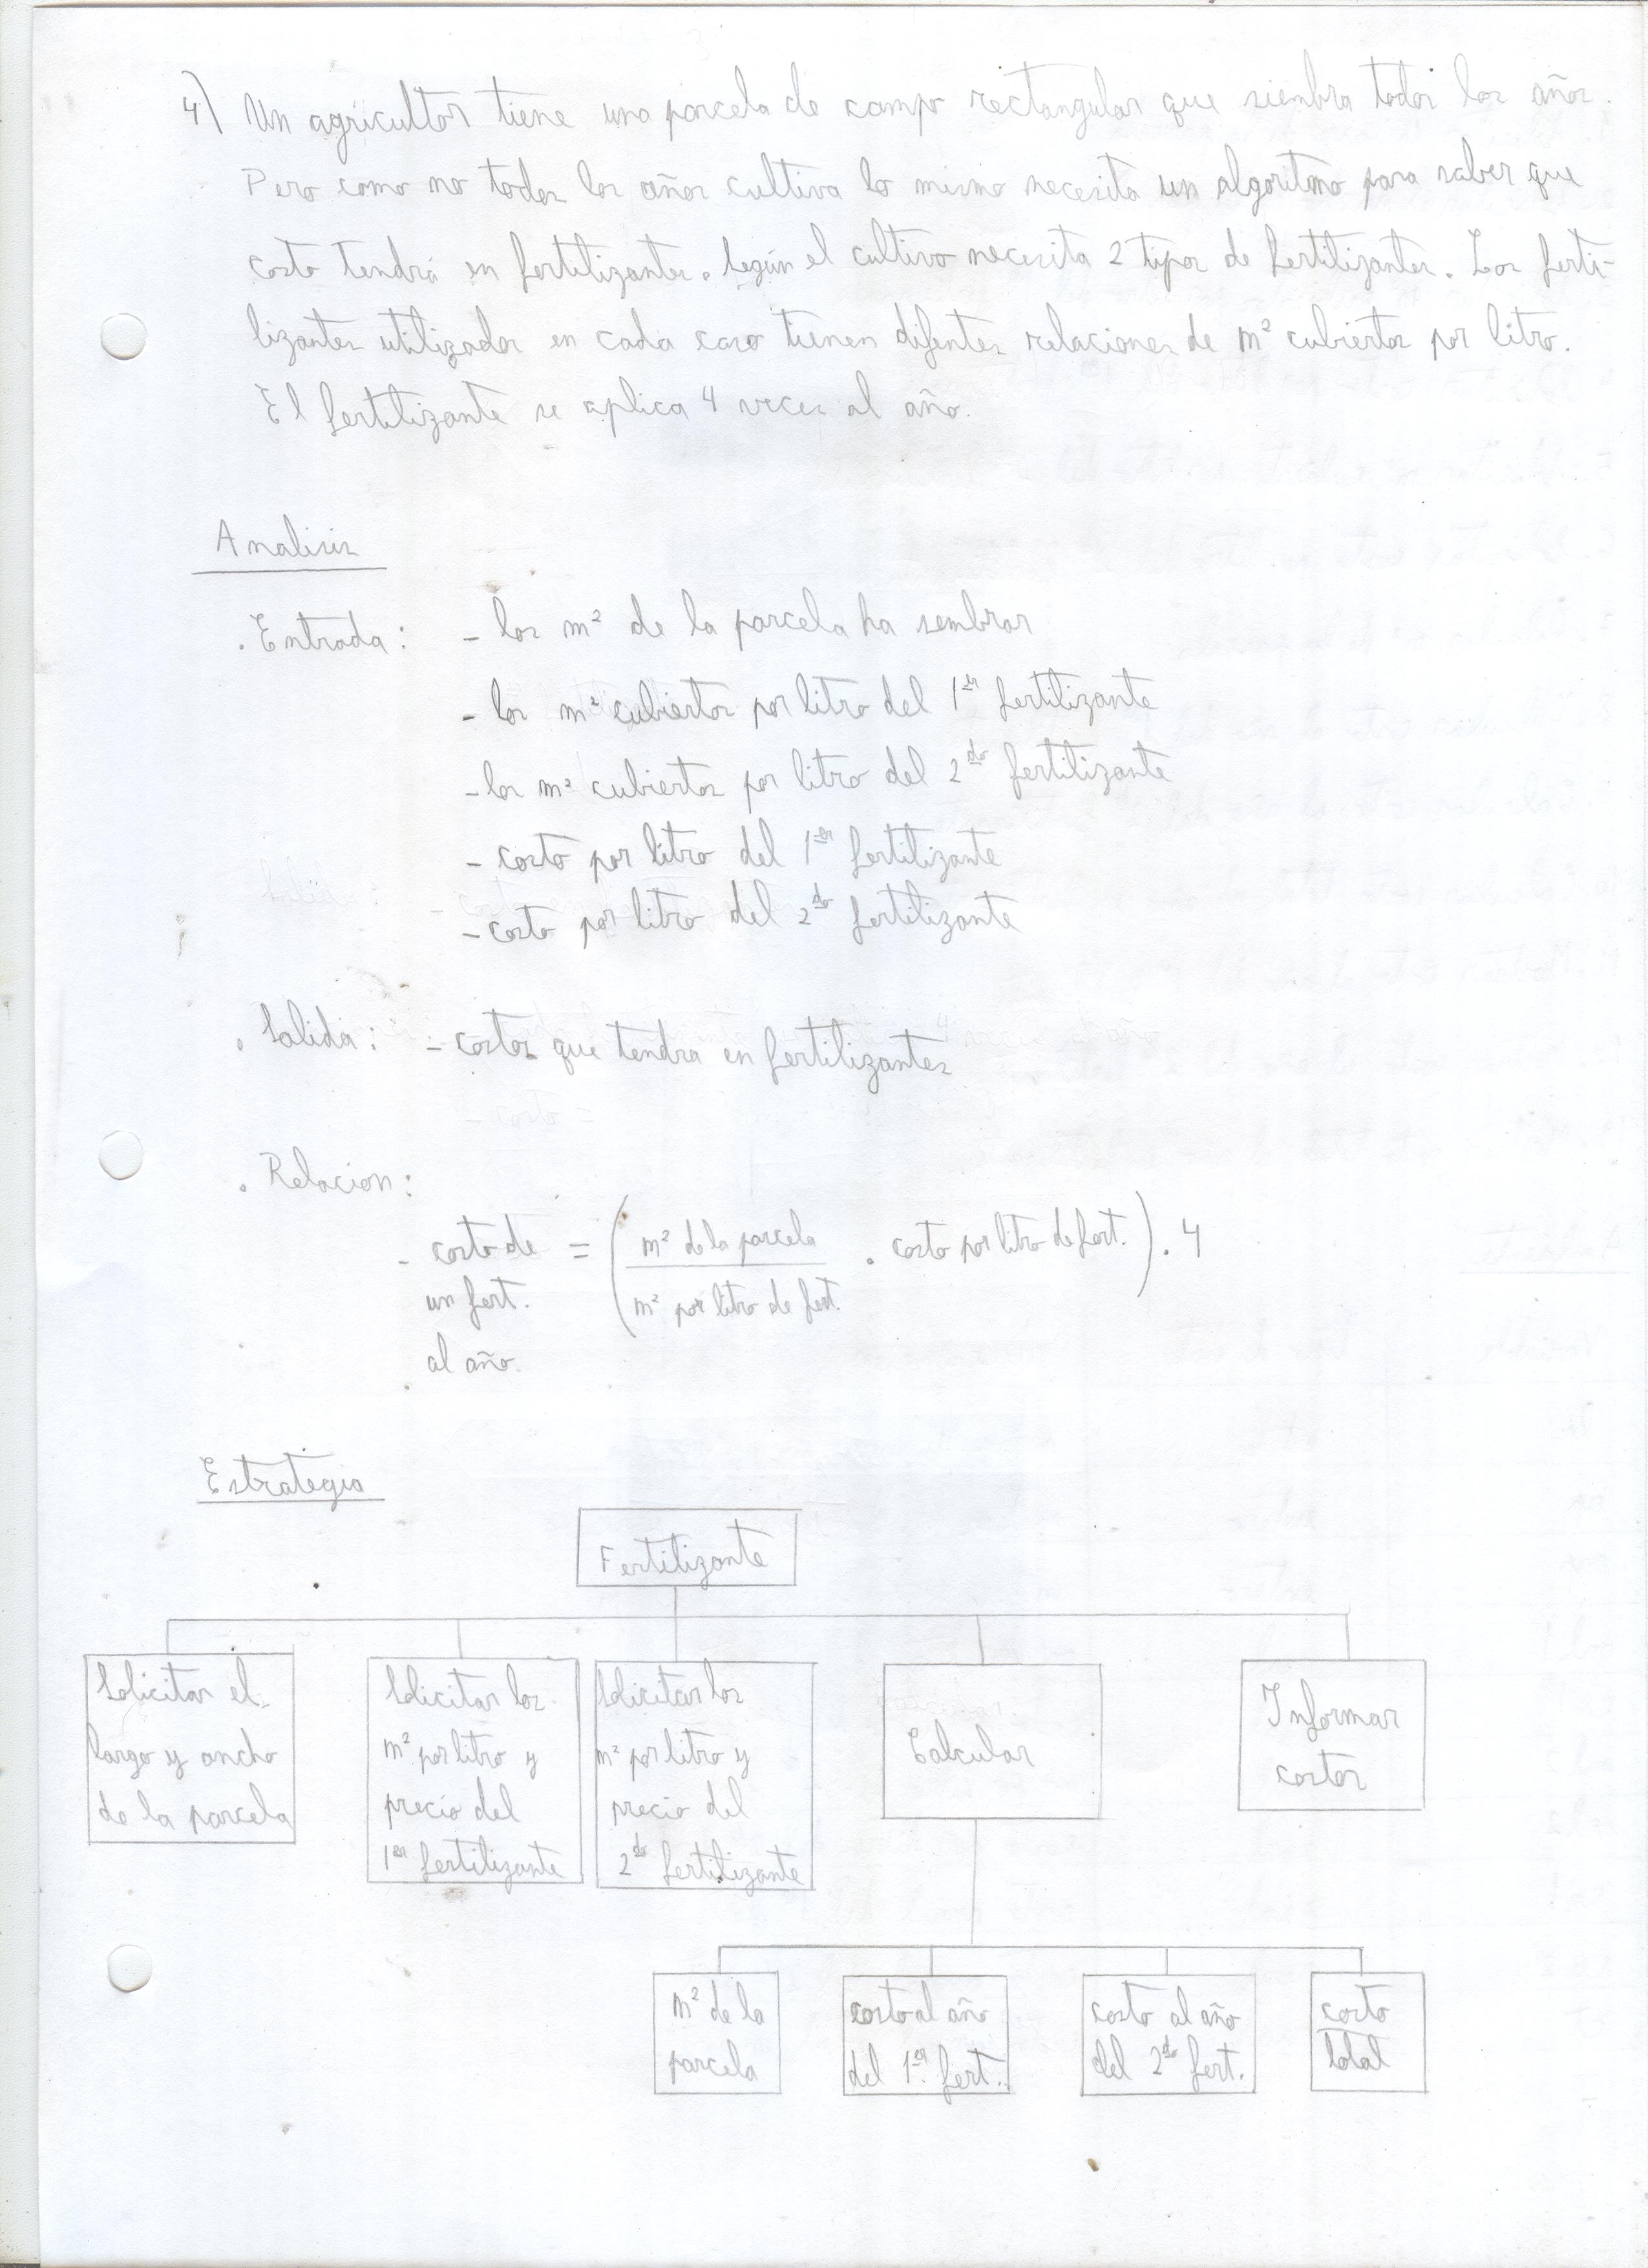 4) Un agricultor tiene una parcela de campo rectangular que siembra todos los años.
Pero como no todos los años cultiva lo mismo necesita un algoritmo para saber que
costo tendrá en fertilizantes. Según el cultivo necesita 2 tipos de fertilizantes. Los ferti-
lizantes utilizados en cada caso tienen difentes relaciones de m² cubiertos por litro.
El fertilizante se aplica 4 veces al año.
Analisis
. Entrada: - los m² de la parcela ha sembrar
- los m² cubiertos por litro del 1er fertilizante
- los m² cubiertos por litro del 2do fertilizante
- costo por litro del 1er fertilizante
- costo por litro del 2do fertilizante
. Salida: - costos que tendra en fertilizantes
. Relacion:
- costo de un fert. al año. = (m² de la parcela / m² por litro de fert. . costo por litro de fert.) . 4
Estrategia
Fertilizante
Solicitar el
largo y ancho
de la parcela
Solicitar los
m² por litro y
precio del
1er fertilizante
Solicitar los
m² por litro y
precio del
2do fertilizante
Calcular
Informar
costos
m² de la
parcela
costo al año
del 1er fert.
costo al año
del 2do fert.
costo
total